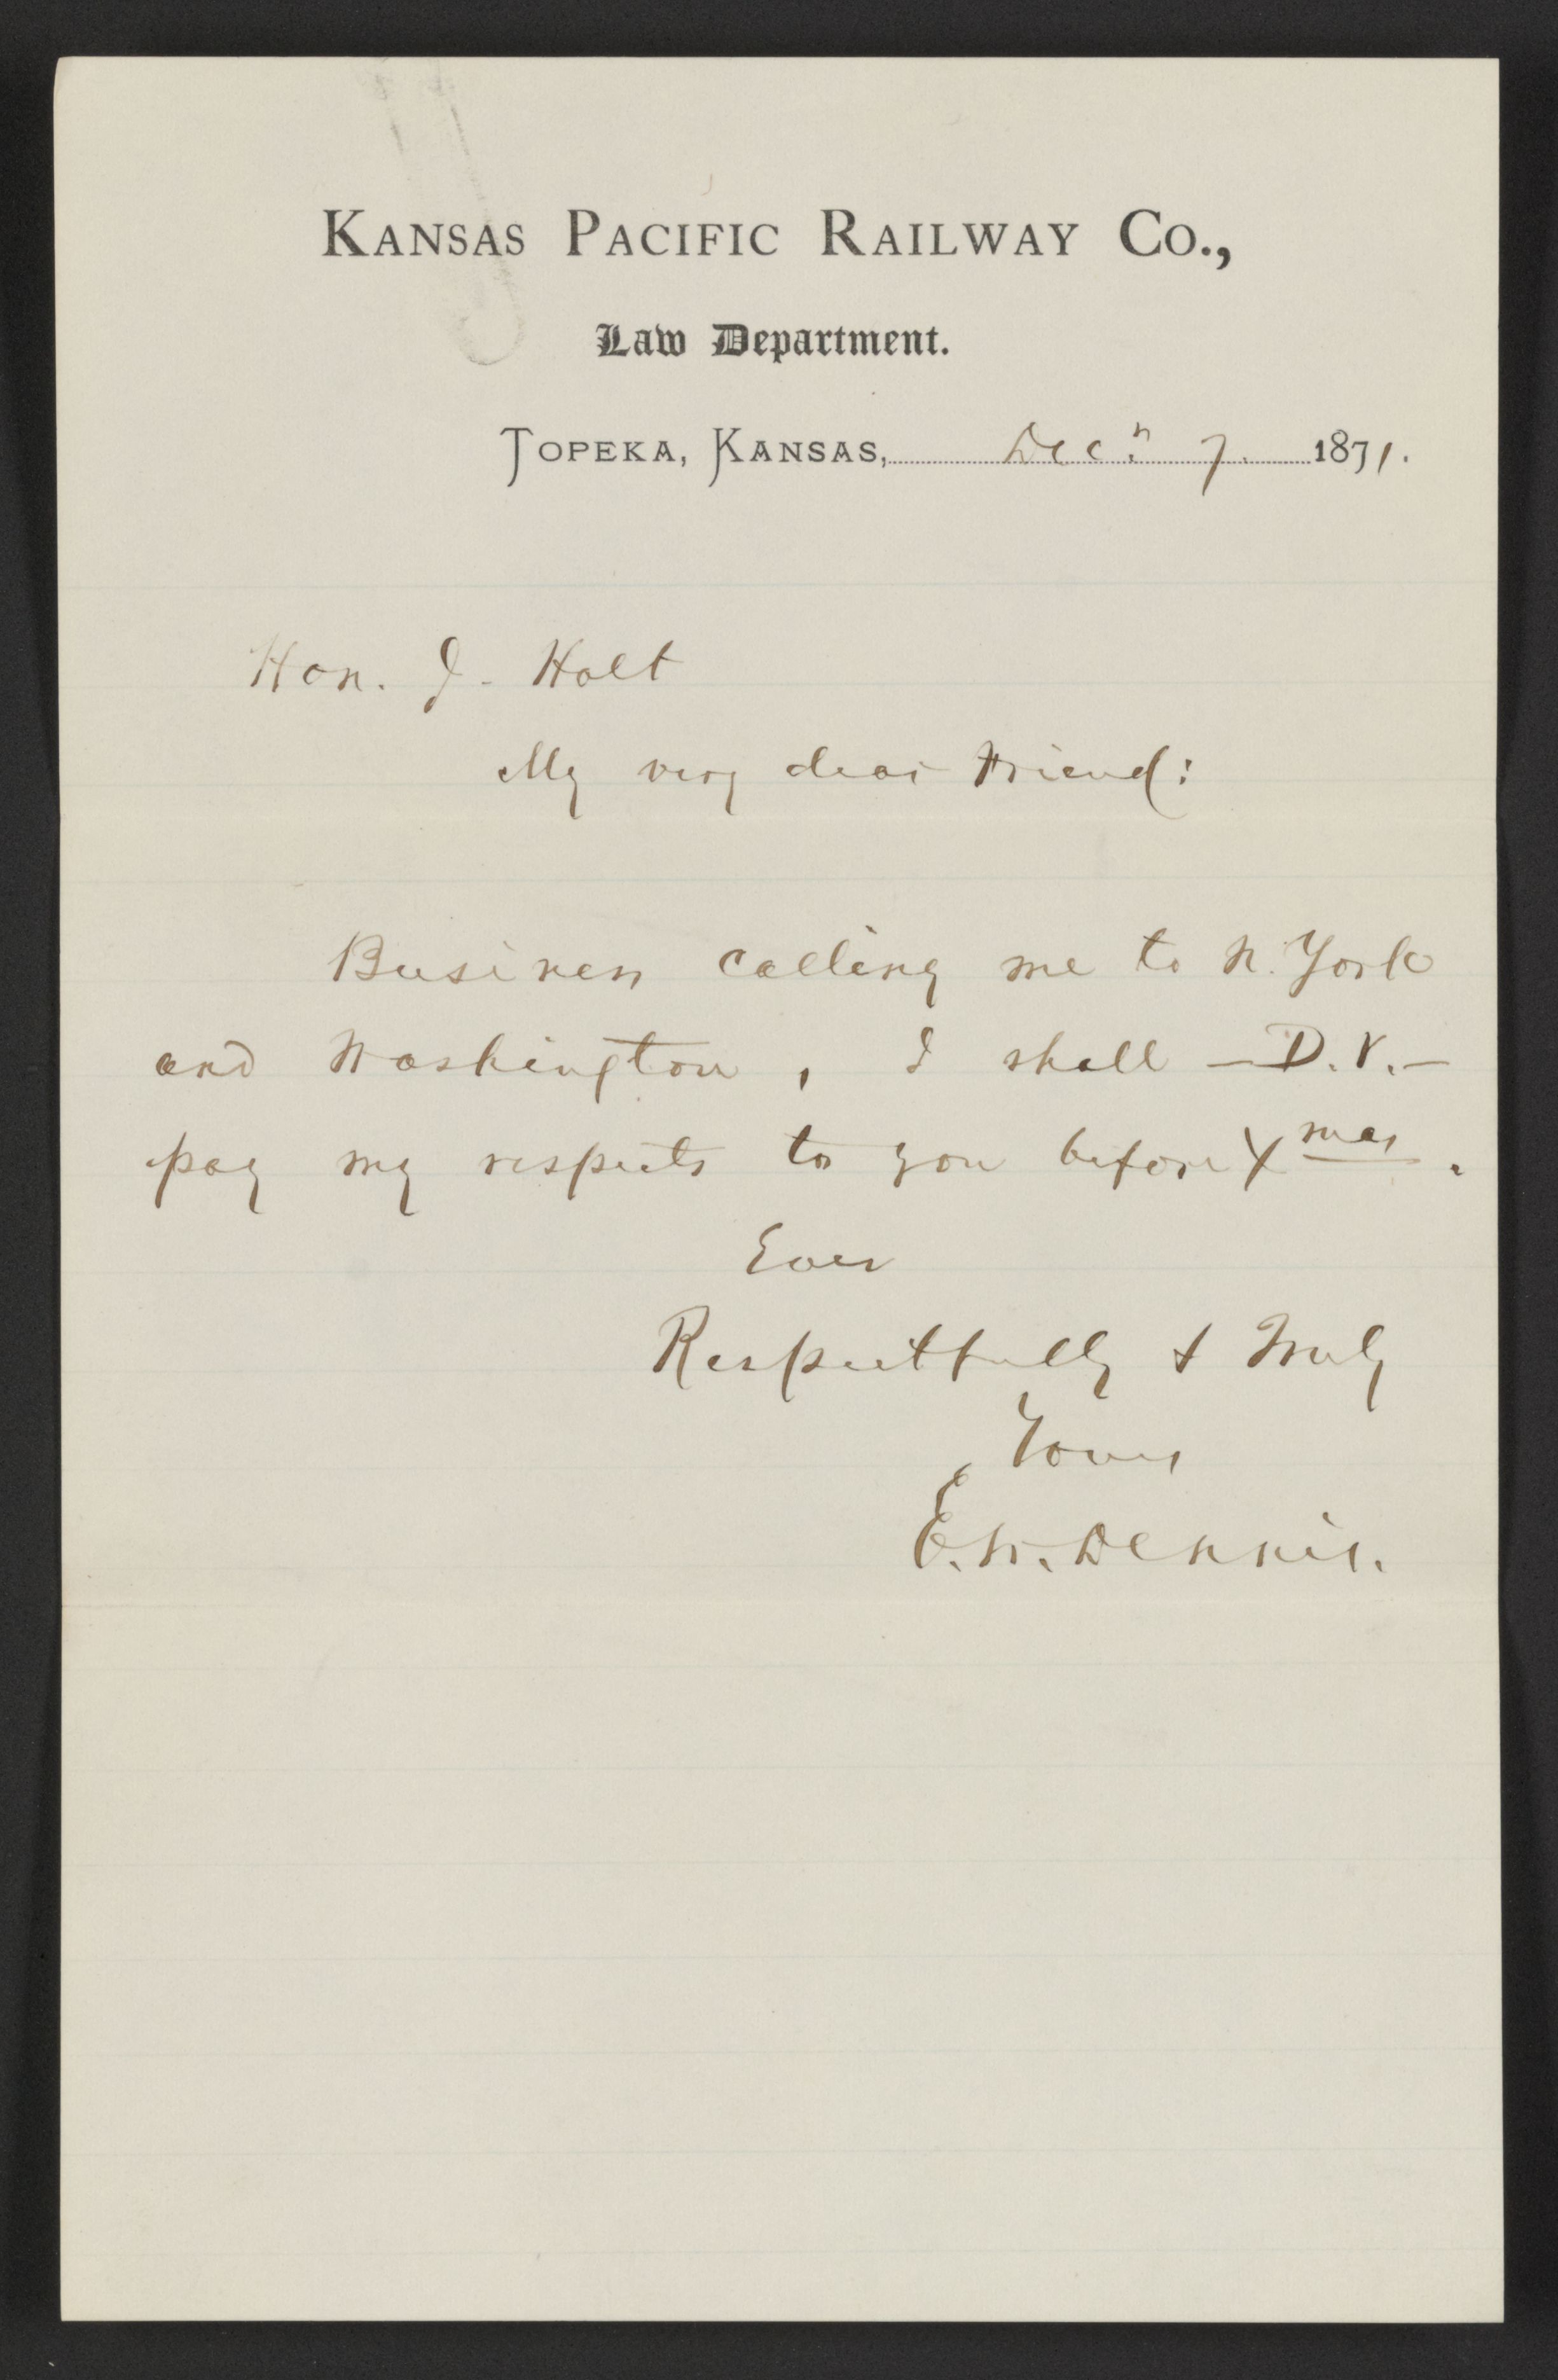 KANSAS PACIFIC RAILWAY CO.,
Law Department.
TOPEKA, KANSAS, Dec.r 7. 1871.
Hon. J. Holt
My very dear Friend:
Business calling me to N. York
and Washington, I shall — D.V. —
pay my respects to you before Xmas.
Ever
Respectfully & Truly
Yours
E. W. Dennis.